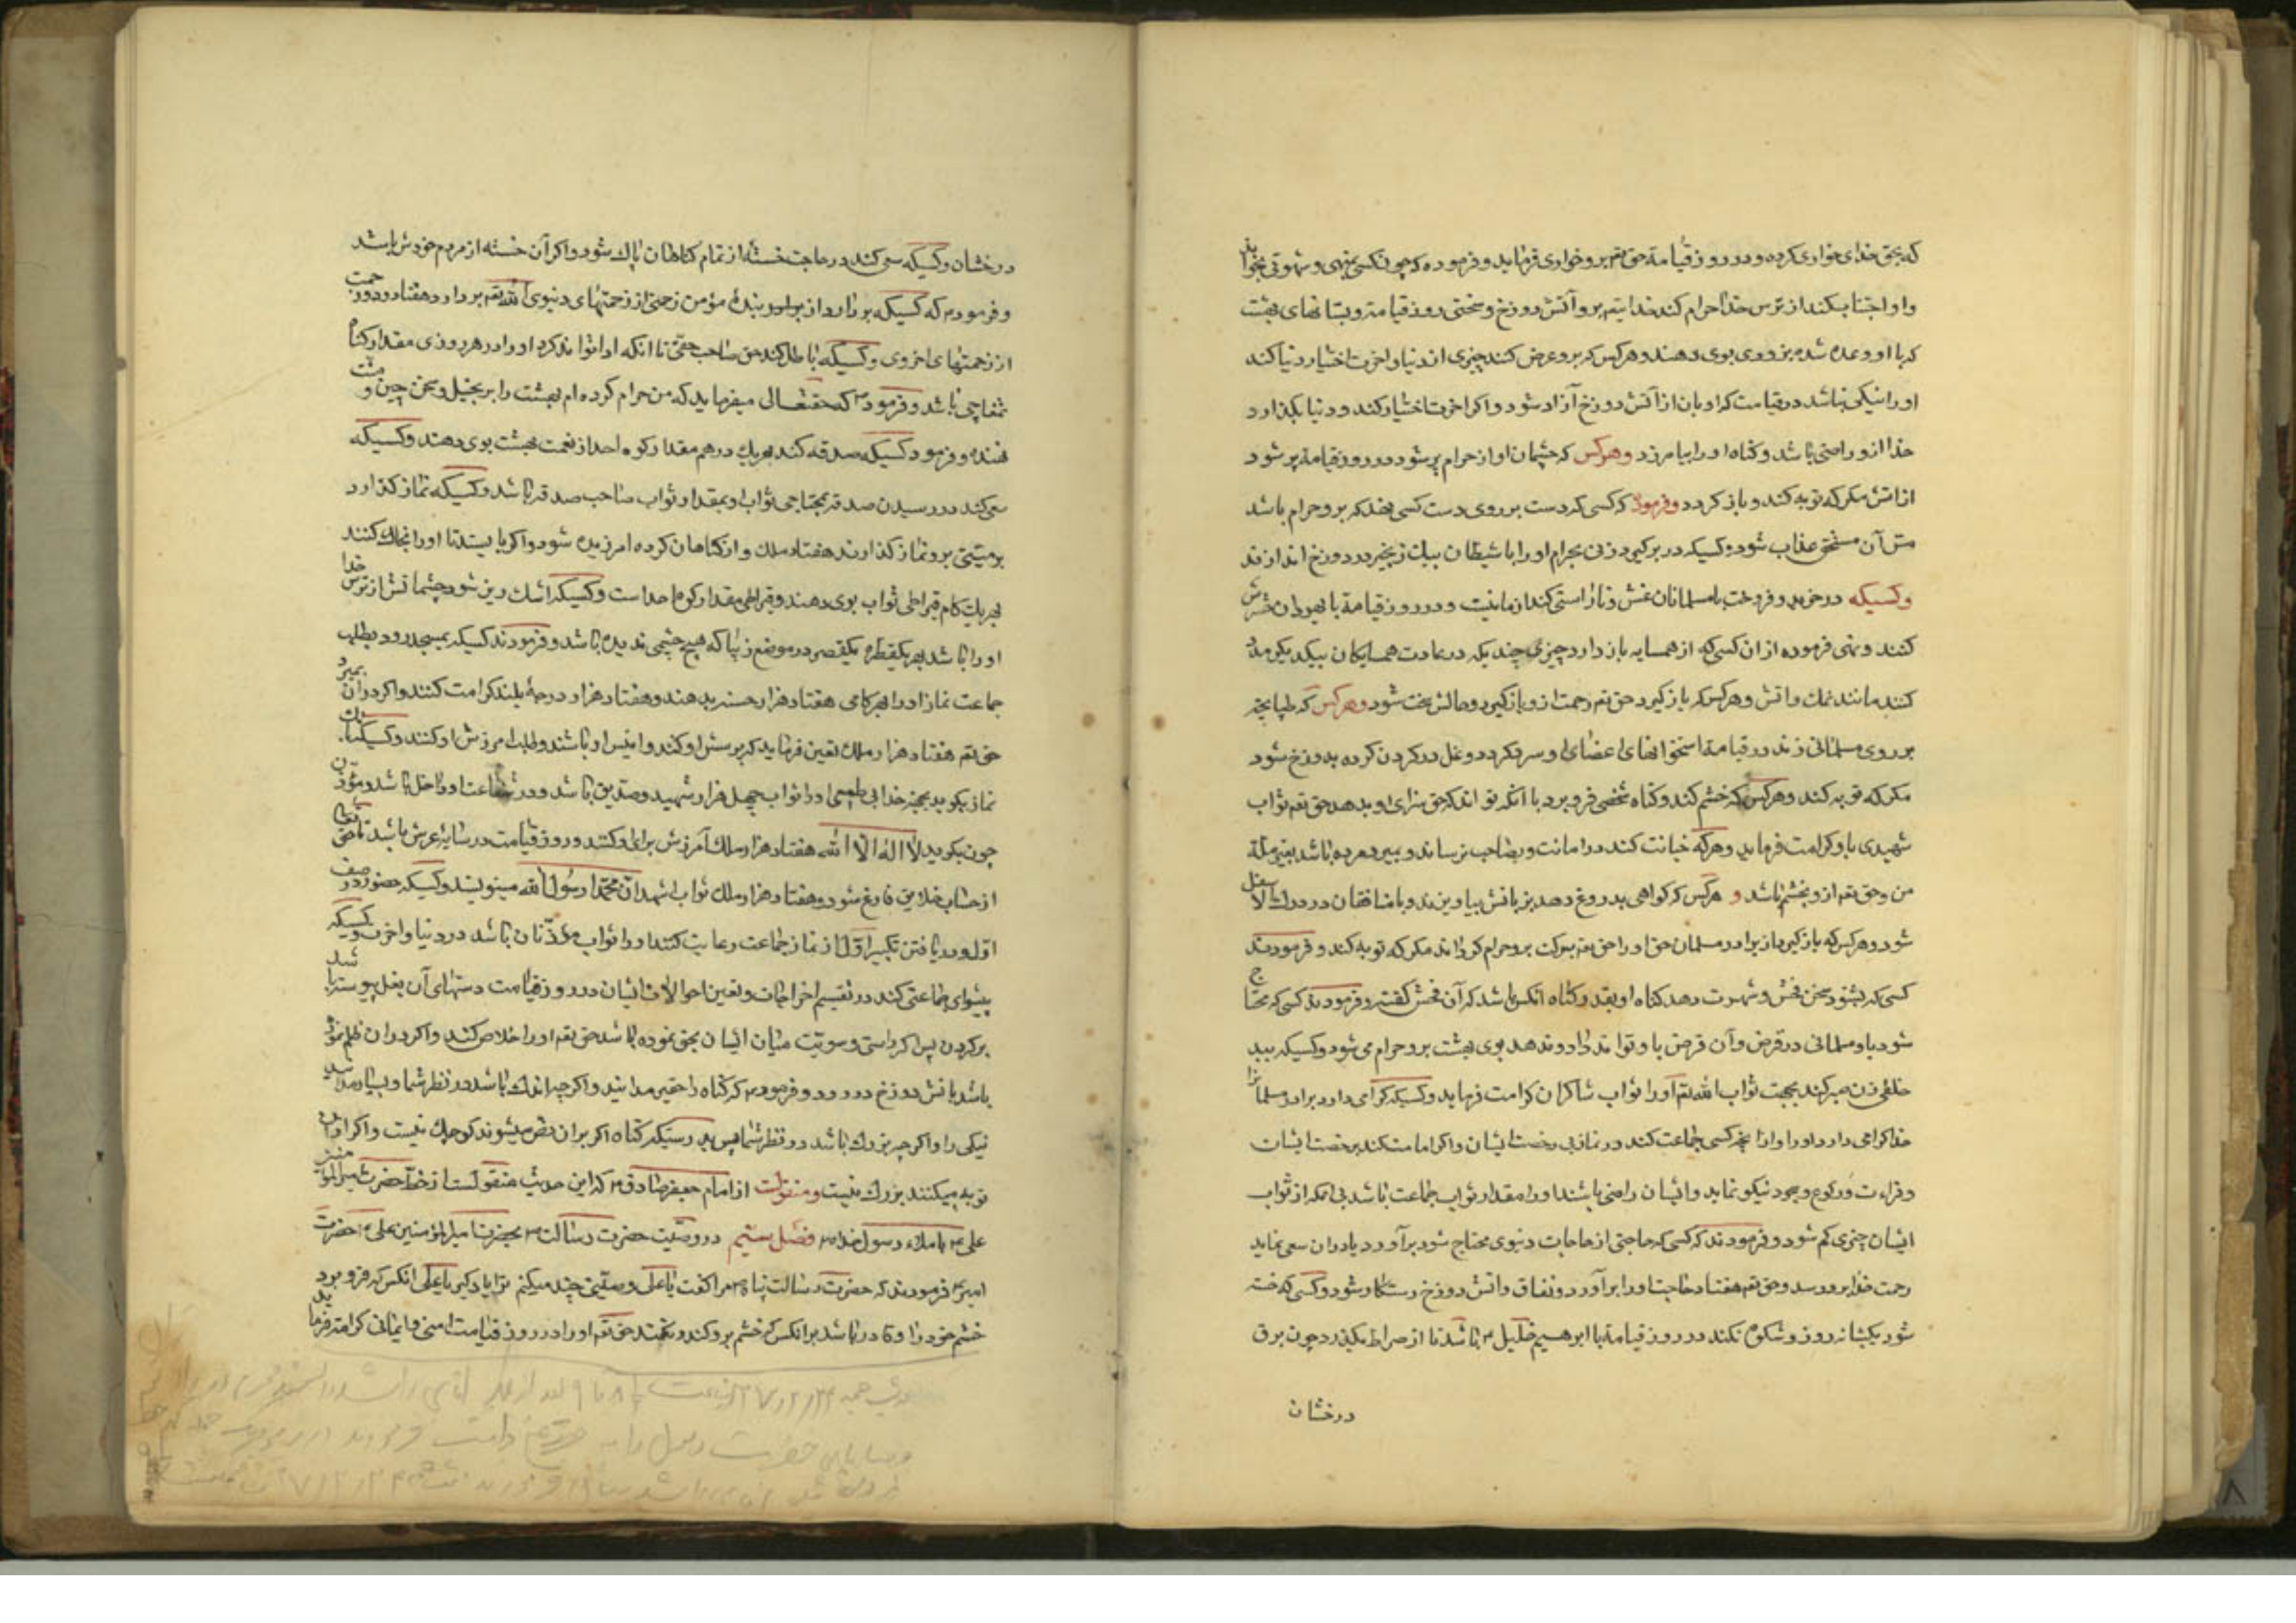 که بحق خدای خواری کرده و در روز قیامة حق تعم برو خواری فرماید و فرموده که چون کسی بفهمی و شهوتی بخواند
و او اجتناب کند از ترس خدا حرام کند خدایتعم برو آتش دوزخ و سختی روز قیامة و بستانهای بهشت
که با او وعده شده بزودی بوی دهند و هر کس که برو عرض کنند چیزی از دنیا و اخرت اختیار دنیا کند
او را نیکی نباشد در قیامت که او بان از آتش دوزخ آزاد شود و اکر اخرت اختیار کند و دنیا بگذارد
خدا ازو راضی باشد و کناه او را بیامرزد وهرکس که چشمان او از حرام پر شود در روز قیامة پر شود
از اتش مکر که توبه کند و باز کردد وفرمود که کسی که دست بر روی دست کسی نهد که برو حرام باشد
مس آن مستحق عذاب شود و کسیکه در بر کیرد زنی بحرام او را با شیطان بیک زنجیر در دوزخ اندازند
وکسیکه در خرید و فروخت با مسلمانان غش و ناراستی کند از ما نیست و در روز قیامة با یهودان حشرش
کنند و نهی فرموده از ان کسی که از همسایه باز دارد چیزی چند که در عادت همسایکان بیکدیکر مدد
کنند مانند نمک و اتش و هر کس که باز کیرد حق تعم رحمت ازو باز کیرد و حالش سخت شود وهرکس که طپانچه
بر روی مسلمانی زند در قیامة استخوانهای اعضای او سر کردد و غل در کردن کرده بدوزخ شود
مکر که توبه کند وهرکس که خشم کند و کناه شخصی فرو برد با آنکه تواند که حق سزای او بدهد حق تعم ثواب
شهیدی باو کرامت فرماید وهرکه خیانت کند در امانت و بصاحب نرساند و بمیرد مرده باشد بغیر ملة
من و حق تعم ازو بخشم باشد و هرکس که کواهی بدروغ دهد بزبانش بیاویزند و با منافقان در درک الاسفل
شود و هر کس که باز کیرد از برادر مسلمان حق او را حق تعم برکت برو حرام کرداند مکر که توبه کند و فرمودند
کسی که بشنود سخن فحش و شهرت دهد کناه او بقدر کناه انکس باشد که آن فحش گفته و فرمودند کسی که محتاج
شود باو مسلمانی در قرض و آن قرض باو تواند داد و ندهد بوی بهشت برو حرام می شود و کسیکه ببد
خلقی زن صبر کند بجهت ثواب الله تعم او را ثواب شاکران کرامت فرماید و کسیکه کرامی دارد برادر مسلمانرا
خدا کرامی دارد او را و از انچه کسی جماعت کند در نماز بی رخصت ایشان و اکر امامت کند برخصت ایشان
و قراءت و رکوع و سجود نیکو نماید و ایشان راضی باشند او را مقدار ثواب جماعت باشد بی انکه از ثواب
ایشان چیزی کم شود و فرمودند که کسی که حاجتی از حاجات دنیوی محتاج شود بر آورد یا در ان سعی نماید
رحمت خدا برو رسد و حق تعم هفتاد حاجت او را بر آورد و نفاق و اتش دوزخ رستکار شود و کسی که خسته
شود یکشبانه روز و شکوه نکند در روز قیامة با ابرهیم خلیل ۴ باشد تا از صراط بگذرد چون برق
درخشان
درخشان و کسیکه سعی کند در حاجت خستهٔ از تمام کناهان پاک شود و اکر آن خسته از مردم خودش باشد
و فرمود م که کسیکه بردارد از برادر بندهٔ مؤمن زحمتی از زحمتهای دنیوی الله تعم بردارد هفتاد و دو زحمت
از زحمتهای اخروی و کسیکه باطل کند حق صاحب حقی تا انکه ادا تواند کرد او را در هر روزی مقدار کناه
تمغاچی باشد و فرمود م که حقتعالی میفرماید که من حرام کرده ام بهشت را بر بخیل و سخن چین و منت
نهنده و فرمود کسیکه صدقه کند بهر یک درهم مقدار کوه احد از نعمت بهشت بوی دهند و کسیکه
سعی کند در رسیدن صدقه بمحتاجی ثواب او بمقدار ثواب صاحب صدقه باشد و کسیکه نماز کذارد
بر میتی برو نماز کذارند هفتاد ملک و از کناهان کرده امرزیده شود و اکر بایستد تا او را بخاک کنند
بهر یک کام قیراطی ثواب بوی دهند و قیراطی مقدار کوه احد است و کسیکه اشک ریز شود چشمانش از ترس خدا
او را باشد بهر یکقطره یکقصر در موضع زیبا که هیچ چشمی ندیده باشد و فرمودند کسیکه بمسجد رود بطلب
جماعت نماز او را بهر کامی هفتاد هزار حسنه بدهند و هفتاد هزار درجهٔ بلند کرامت کنند و اکر در ان بمیرد
حق تعم هفتاد هزار ملک تعین فرماید که پرسش او کنند و انیس او باشند و طلب امرزش او کنند و کسیکه بانک
نماز بکوید بجهة خدا بی طمعی او را ثواب چهل هزار شهید و صدیق باشد و در شفاعت او داخل باشد و مؤذن
چون بکوید لا اله الا الله هفتاد هزار ملک آمرزش برای او کنند و روز قیامت در سایهٔ عرش باشد تا حق تعالی
از حساب خلایق فارغ شود و هفتاد هزار ملک ثواب اشهد ان محمدا رسول الله مینویسند و کسیکه حضور در صف
اول و دریافتن تکبیر اول از نماز جماعت رعایت کند او را ثواب مؤذنان باشد در دنیا و اخرت و کسیکه
پیشوای جماعتی کند در تقسیم اخراجات و تعین احوالات ایشان در روز قیامت دستهای آن بغل پیوسته باشد
بر کردن پس اکر راستی و سویت میان ایشان بحق نموده باشد حق تعم او را خلاص کند و اکر در ان ظلم نموده
باشد باتش دوزخ در رود و فرمود م که کناه را حقیر مدانید و اکر چه اندک باشد در نظر شما و بسیار مدانید
نیکی را و اکر چه بزرک باشد در نظر شما پس بدرستیکه کناه اکر بر ان مصر میشوند کوچک نیست و اکر از ان
توبه میکنند بزرک نیست ومنقولست از امام جعفر صادق ۴ که این حدیث منقولست از خط حضرت امیرالمؤمنین
علی ۴ باملاء رسول خدا ص فصل سیم در وصیت حضرت رسالت ص بحضرت امیرالمؤمنین علی ۴ حضرت
امیر ۴ فرمودند که حضرت رسالت پناه ص مرا کفت یا علی وصیتی چند میکنم ترا یاد کیر یا علی انکس که فرو برد
خشم خود را و قادر باشد بر انکس که خشم برو کند و نکند حق تعم او را در روز قیامت امنی و ایمانی کرامت فرماید
حضرت رسول را به